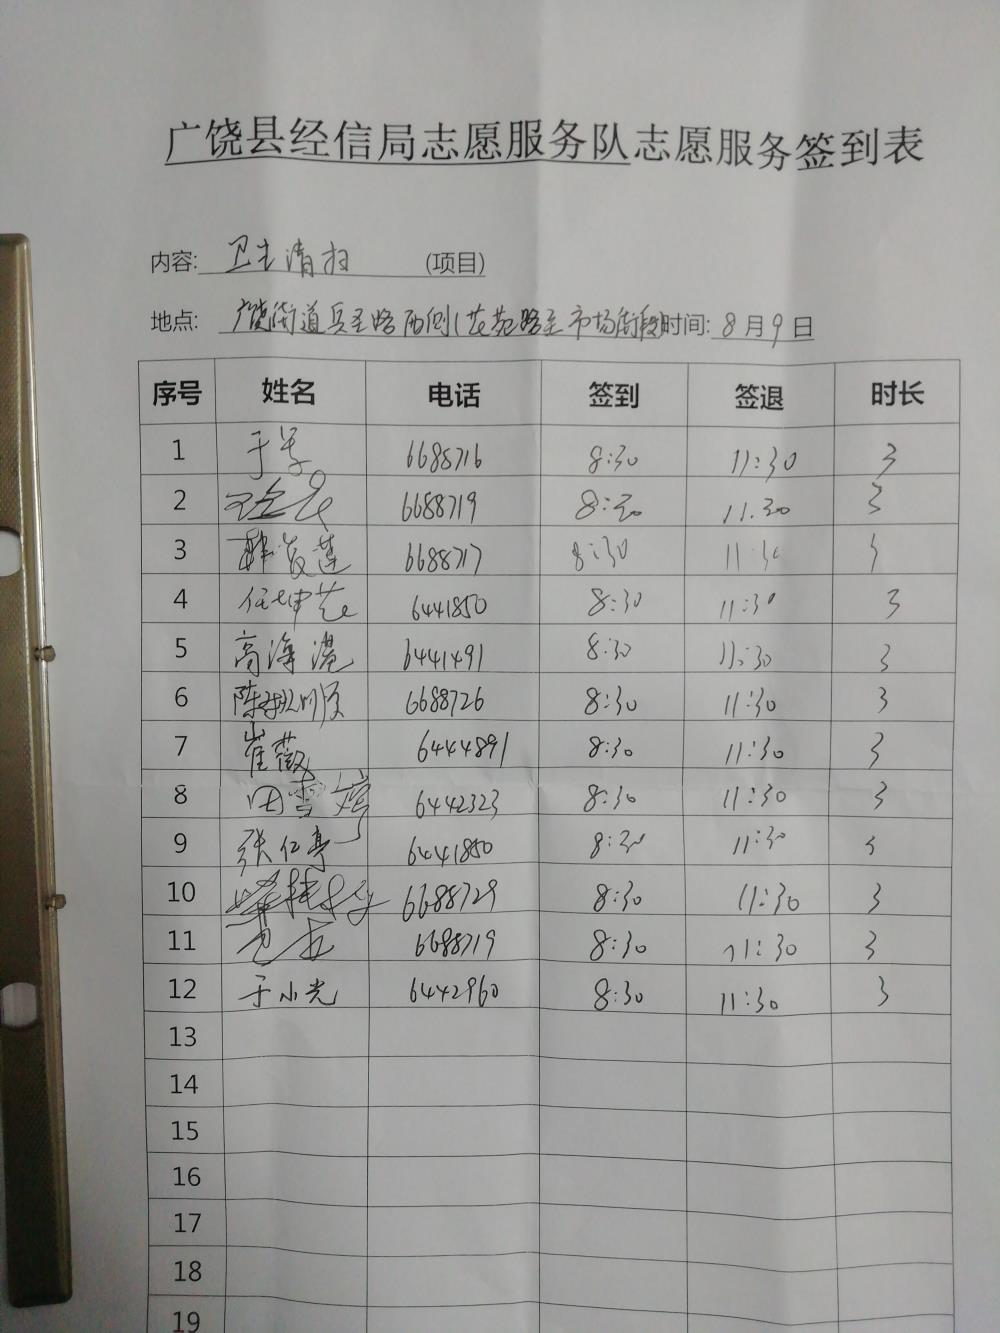 广饶县经信局志愿服务队志愿服务签到表
内容: 卫生清扫 (项目)
地点: 广饶街道兵圣路西侧(花苑路至市场街段 时间: 8月9日
序号 姓名 电话 签到 签退 时长
1 于 6688716 8:30 11:30 3
2 6688719 8:30 11:30 3
3 6688717 8:30 11:30 3
4 任坤花 6441850 8:30 11:30 3
5 高海港 6441491 8:30 11:30 3
6 陈顺 6688726 8:30 11:30 3
7 崔薇 6444891 8:30 11:30 3
8 田雪婷 6442323 8:30 11:30 3
9 张仁亭 6441850 8:30 11:30 3
10 6688729 8:30 11:30 3
11 6688719 8:30 11:30 3
12 于小光 6442960 8:30 11:30 3
13
14
15
16
17
18
19